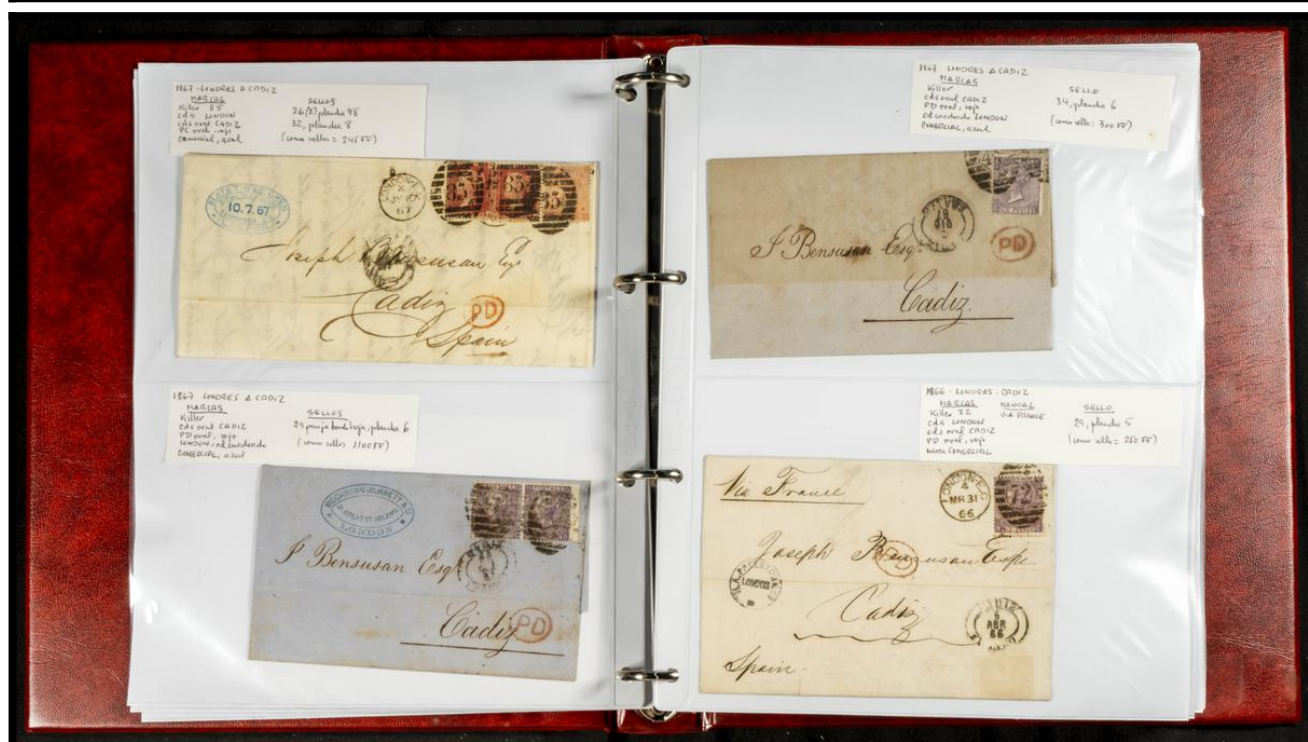 1867 - LONDRES A CADIZ
MARCAS
Killer 85
cds LONDON
cds oval CADIZ
PD oval - rojo
COMERCIAL, azul
SELLOS
26(2) plancha 98
32, plancha 8
(como sellos = 245 FF)
10.7.67
LONDON
LONDON E.C
X
JY 10
67
85
85
85
Joseph Bensusan Esqe
Cadiz
PD
Spain
1867 LONDRES A CADIZ
MARCAS
Killer
cds oval CADIZ
PD oval, rojo
LONDON - redondo
COMERCIAL, azul
SELLOS
plancha 6
(como sellos 1100 FF)
LONDON
J Bensusan Esqe
Cadiz
PD
1867 LONDRES A CADIZ
MARCAS
Killer
cds oval CADIZ
PD oval, rojo
LONDON
COMERCIAL, azul
SELLO
34, plancha 6
(como sello = 300 FF)
J Bensusan Esqe
PD
Cadiz.
1866 - LONDRES - CADIZ
MARCAS
Killer 72
cds LONDON
cds oval CADIZ
PD oval, rojo
MARCA COMERCIAL
MANUAL
VIA FRANCE
SELLO
29, plancha 5
(como sello = 250 FF)
Via France
LONDON E.C
4
MR 31
66
72
Joseph Bensusan Esqe
LONDON
Cadiz
CADIZ
5
ABR
66
Spain